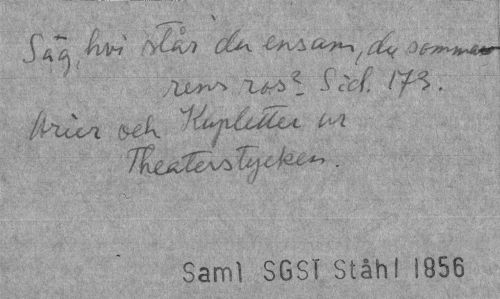 Säg, hvi står du ensam, du somma
rens ros? Sid. 173.
Arier och Kupletter ur
Theaterstycken.
Saml SGSt Ståhl 1856